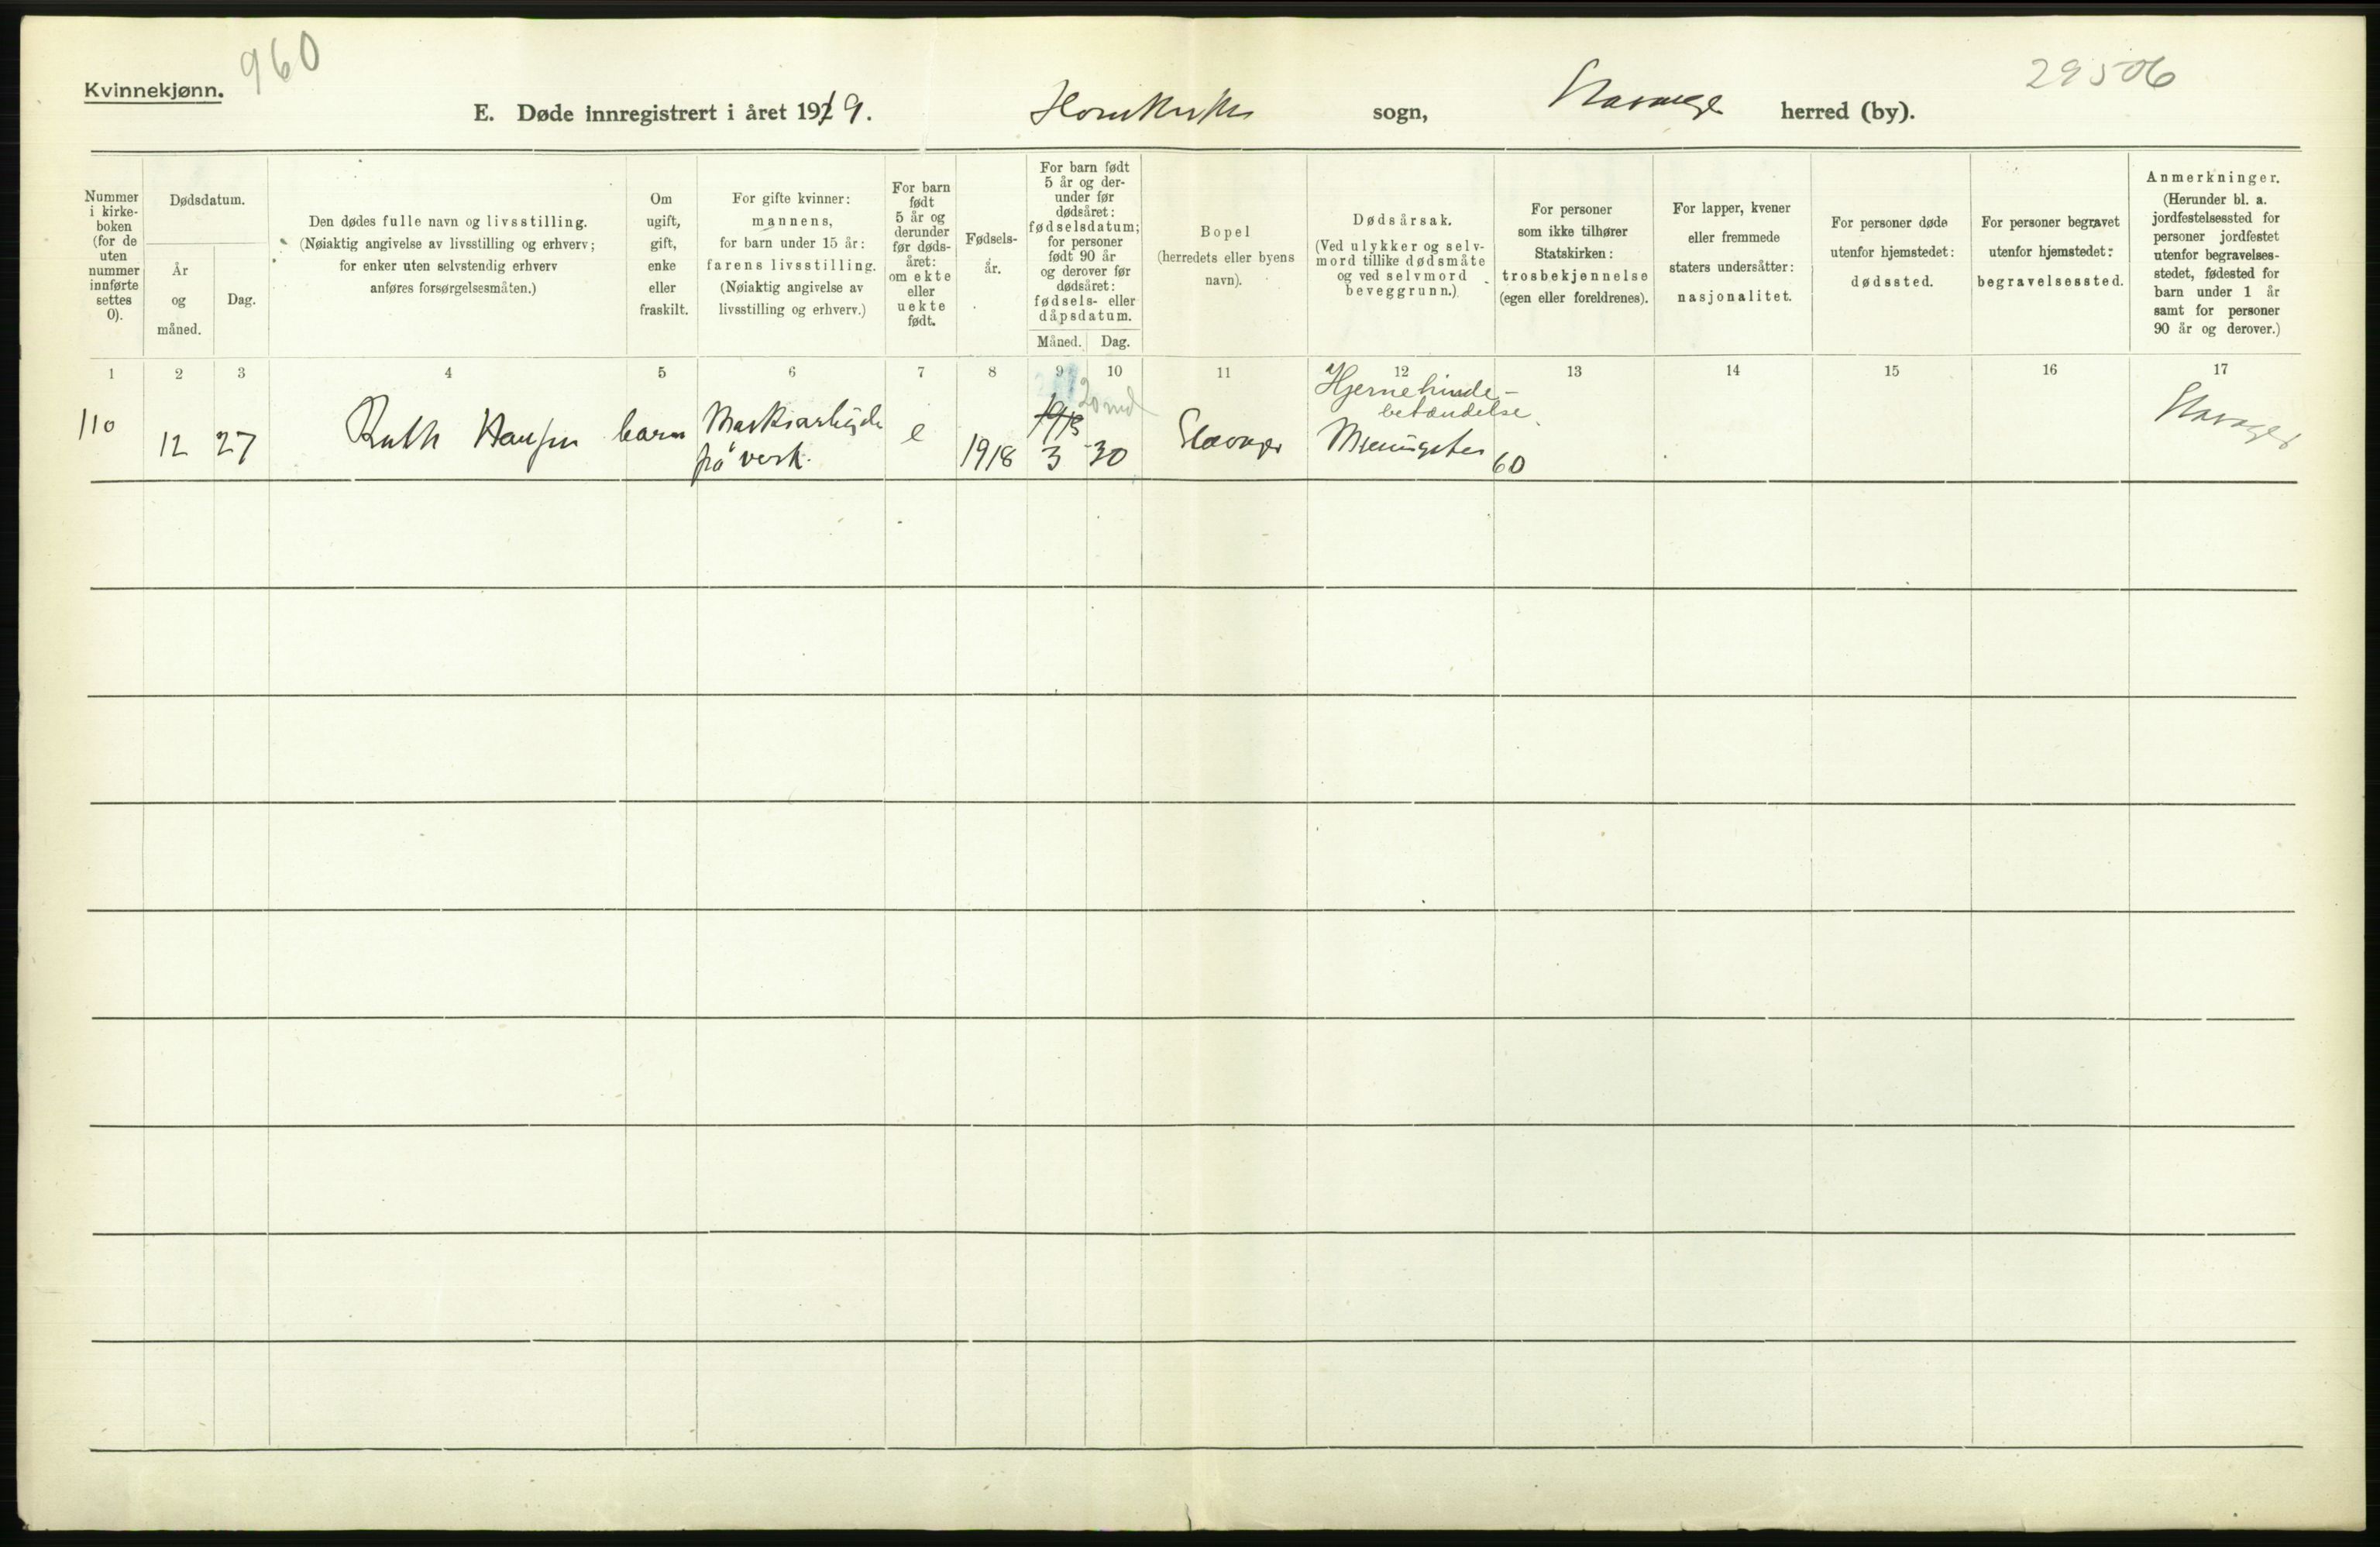 Kvinnekjønn.
960
29506
E. Døde innregistrert i året 1919.
sogn,
Stavanger
herred (by).
Nummer
i kirke-
boken
(for de
uten
nummer
innførte
settes
0).
Dødsdatum.
År
og
måned.
Dag.
Den dødes fulle navn og livsstilling.
(Nøiaktig angivelse av livsstilling og erhverv;
for enker uten selvstendig erhverv
anføres forsørgelsesmåten.)
Om
ugift,
gift,
enke
eller
fraskilt.
For gifte kvinner:
mannens,
for barn under 15 år:
farens livsstilling.
(Nøiaktig angivelse av
livsstilling og erhverv.)
For barn
født
5 år og
derunder
før døds-
året:
om ekte
eller
uekte
født.
Fødsels-
år.
For barn født
5 år og der-
under før
dødsåret:
fødselsdatum;
for personer
født 90 år
og derover før
dødsåret:
fødsels- eller
dåpsdatum.
Måned.
Dag.
Bopel
(herredets eller byens
navn).
Dødsårsak.
(Ved ulykker og selv-
mord tillike dødsmåte
og ved selvmord
beveggrunn.)
For personer
som ikke tilhører
Statskirken:
trosbekjennelse
(egen eller foreldrenes).
For lapper, kvener
eller fremmede
staters undersåtter:
nasjonalitet.
For personer døde
utenfor hjemstedet:
dødssted.
For personer begravet
utenfor hjemstedet:
begravelsessted.
Anmerkninger.
(Herunder bl. a.
jordfestelsessted for
personer jordfestet
utenfor begravelses-
stedet, fødested for
barn under 1 år
samt for personer
90 år og derover.)
1 2 3 4 5 6 7 8 9 10 11 12 13 14 15 16 17
110
12
27
Ruth Hansen
barn
på verk.
e
1918
20 md
1918
3
30
Stavanger
Hjernehinde-
betændelse.
60
Stavanger